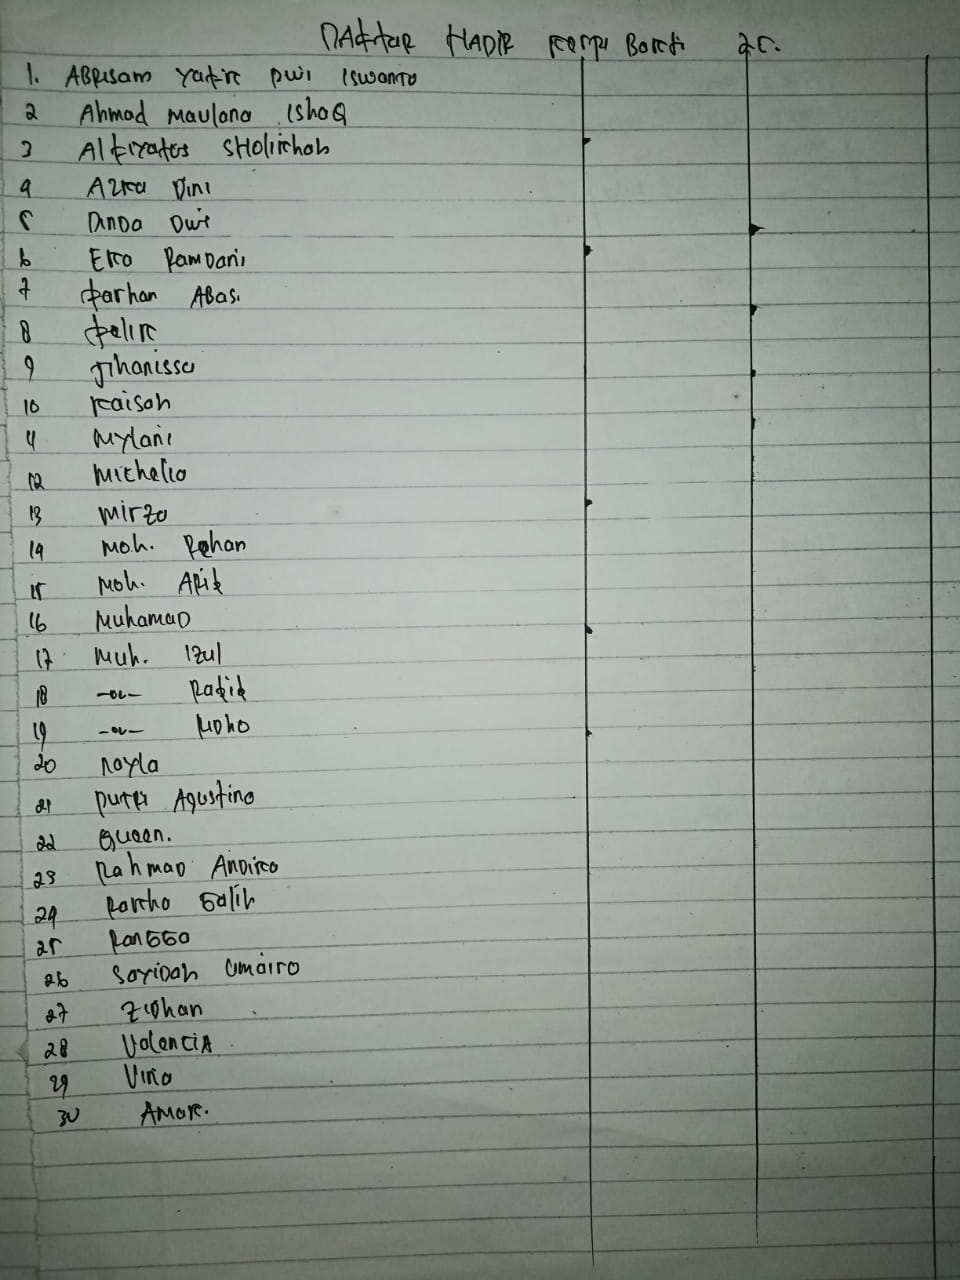 DAftar HADIR kerja Bakti 2C.
1. ABRISam Yafiк Dwi Iswanto
2 Ahmad Maulana IshaQ
3 Alfiyatus SHolikhah
4 Azka Dini
5 Dinda Dwi
6 Eka Ramdani
7 Farhan ABas.
8 Felik
9 Jihanissa
10 Kaisah
11 Mylani
12 Michello
13 Mirza
14 Moh. Rehan
15 Moh. Arif
16 Muhamad
17 Muh. Izul
18 Rafif
19
20 Nayla
21 Putri Agustina
22 Queen.
23 Rahmad Andika
24 Galih
25 Rangga
26 Sayidah Umairo
27 Zidhan
28 ValenciA
29 Vino
30 Amor.